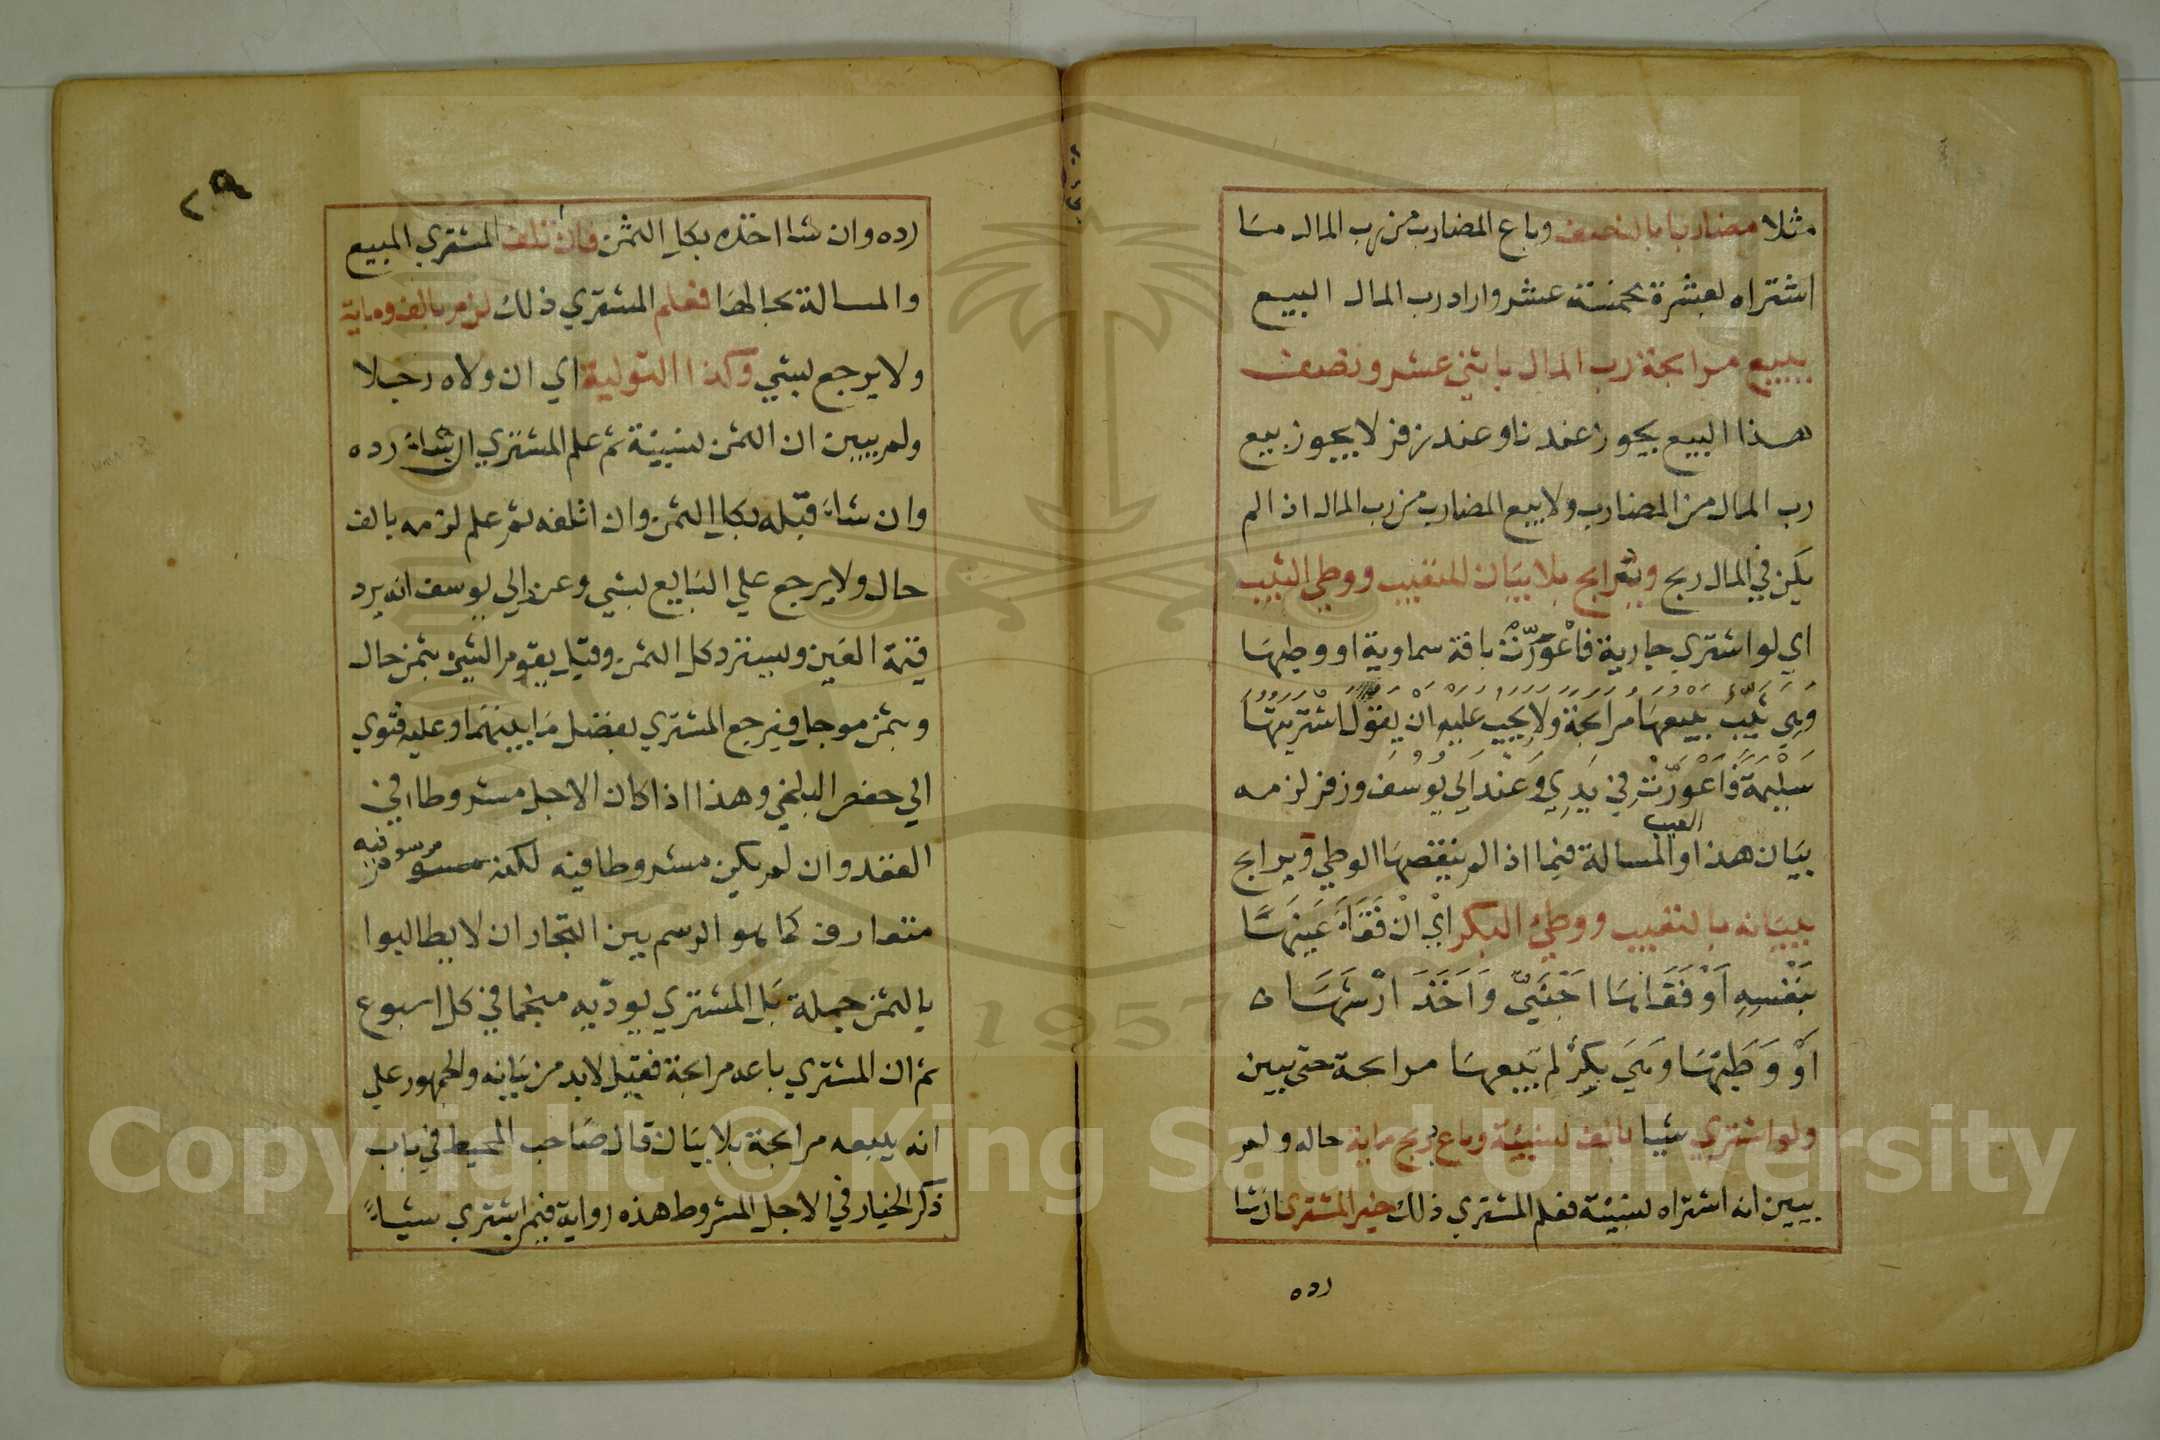 مثلا مضاربا بالنصف وباع المضارب من رب المال ما
اشتراه بعشرة بخمسة عشر واراد رب المال البيع
يبيع مرابحة رب المال باثني عشر ونصف
هذا البيع يجوز عندنا وعند زفر لا يجوز بيع
رب المال من المضارب ولا بيع المضارب من رب المال اذا لم
يكن في المال ربح ويرابح بلا بيان للتعييب ووطي الثيب
اي لو اشتري جارية فاعْورّتْ بافة سماوية او وطيها
وهي ثيب يبيعها مرابحة ولا يجب عليه ان يقول اشتريتها
سليمة فاعورّت في يدي وعند ابي يوسف وزفر لزمه
العيب
بيان هذا والمسالة فيما اذا لم ينقصها الوطي ويرابح
ببيانه بالتعييب ووطي البكر اي ان فقاء عينها
بنفسه او فقاها اجنبي واخذ ارشها
او وطيها وهي بكر لم يبيعها مرابحة حتي يبين
ولو اشتري شيا بالف نسيئة وباع بربح ماية حاله ولم
يبين انه اشتراه نسيئة فعلم المشتري ذلك خير المشتري ان شا
رده
٢٩
رده وان شا اخذه بكل الثمن فان تلف المشتري المبيع
والمسالة بحالها فعلم المشتري ذلك لزم بالف وماية
ولا يرجع بشي وكذا التولية اي ان ولاه رجلا
ولم يبين ان الثمن نسيئة ثم علم المشتري ان شاء رده
وان شاء قبله بكل الثمن وان اتلفه ثم علم لزمه بالف
حال ولا يرجع علي البايع بشي وعن ابي يوسف انه يرد
قيمة العين ويسترد كل الثمن وقيل يقوم الشي بثمن حال
وبثمن موجل فيرجع المشتري بفضل ما بينهما وعليه فتوي
ابي حفص البلخي وهذا اذا كان الاجل مشروطا في
العقد وان لم يكن مشروطا فيه لكنه
مرسو فيه
متعارف كما هو الرسم بين التجار ان لا يطالبوا
بالثمن جملة بل المشتري يوديه منجما في كل اسبوع
ثم ان المشتري باعه مرابحة فقيل لابد من بيانه والجمهور علي
انه يبيعه مرابحة بلا بيان قال صاحب المحيط في باب
ذكر الخيار في الاجل المشروط هذه رواية فيمن اشتري شيئاً
1957
Copyright © King Saud University